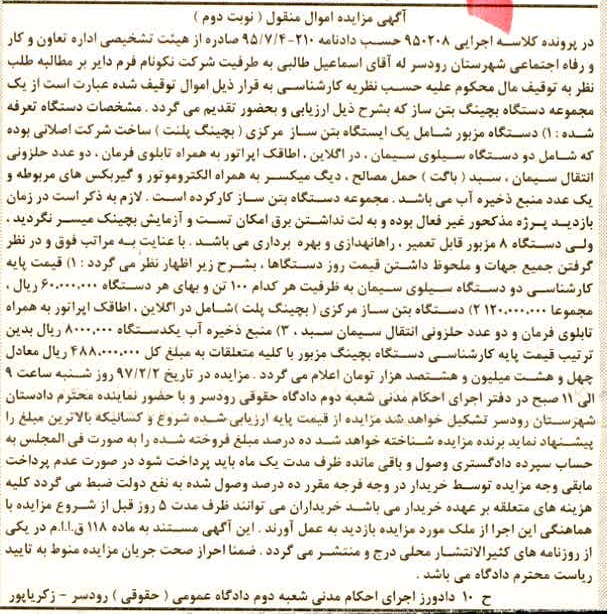 آگهی مزایده اموال منقول ( نوبت دوم )
در پرونده کلاسه اجرایی ۹۵۰۲۰۸ حسب دادنامه ۲۱۰-۹۵/۷/۴ صادره از هیئت تشخیصی اداره تعاون و کار
و رفاه اجتماعی شهرستان رودسر له آقای اسماعیل طالبی به طرفیت شرکت نکونام فرم دایر بر مطالبه طلب
نظر به توقیف مال محکوم علیه حسب نظریه کارشناسی به قرار ذیل اموال توقیف شده عبارت است از یک
مجموعه دستگاه بچینگ بتن ساز که بشرح ذیل ارزیابی و بحضور تقدیم می گردد . مشخصات دستگاه تعرفه
شده : ۱) دستگاه مزبور شامل یک ایستگاه بتن ساز مرکزی ( بچینگ پلنت ) ساخت شرکت اصلانی بوده
که شامل دو دستگاه سیلوی سیمان ، در اگلاین ، اطاقک اپراتور به همراه تابلوی فرمان ، دو عدد حلزونی
انتقال سیمان ، سبد ( باگت ) حمل مصالح ، دیگ میکسر به همراه الکتروموتور و گیربکس های مربوطه و
یک عدد منبع ذخیره آب می باشد . مجموعه دستگاه بتن ساز کارکرده است . لازم به ذکر است در زمان
بازدید پرژه مذکحور غیر فعال بوده و به لت نداشتن برق امکان تست و آزمایش بچینک میسر نگردید .
ولی دستگاه ۸ مزبور قابل تعمیر ، راهانهدازی و بهره برداری می باشد . با عنایت به مراتب فوق و در نظر
گرفتن جمیع جهات و ملحوظ داشتن قیمت روز دستگاها ، بشرح زیر اظهار نظر می گردد : ۱) قیمت پایه
کارشناسی دو دستگاه سیلوی سیمان به ظرفیت هر کدام ۱۰۰ تن و بهای هر دستگاه ۶۰،۰۰۰،۰۰۰ ریال ،
مجموعا ۱۲۰،۰۰۰،۰۰۰ ۲) دستگاه بتن ساز مرکزی ( بچینگ پلت )شامل در اگلاین ، اطاقک اپراتور به همراه
تابلوی فرمان و دو عدد حلزونی انتقال سیمان سبد ، ۳) منبع ذخیره آب یکدستگاه ۸،۰۰۰،۰۰۰ ریال بدین
ترتیب قیمت پایه کارشناسی دستگاه بچینگ مزبور با کلیه متعلقات به مبلغ کل ۴۸۸،۰۰۰،۰۰۰ ریال معادل
چهل و هشت میلیون و هشتصد هزار تومان اعلام می گردد . مزایده در تاریخ ۹۷/۲/۲ روز شنبه ساعت ۹
الی ۱۱ صبح در دفتر اجرای احکام مدنی شعبه دوم دادگاه حقوقی رودسر و با حضور نماینده محترم دادستان
شهرستان رودسر تشکیل خواهد شد مزایده از قیمت پایه ارزیابی شده شروع و کسانیکه بالاترین مبلغ را
پیشنهاد نماید برنده مزایده شناخته خواهد شد ده درصد مبلغ فروخته شده را به صورت فی المجلس به
حساب سپرده دادگستری وصول و باقی مانده ظرف مدت یک ماه باید پرداخت شود در صورت عدم پرداخت
مابقی وجه مزایده توسط خریدار در وجه فرجه مقرر ده درصد وصول شده به نفع دولت ضبط می گردد کلیه
هزینه های متعلقه بر عهده خریدار می باشد خریداران می توانند ظرف مدت ۵ روز قبل از شروع مزایده با
هماهنگی این اجرا از ملک مورد مزایده بازدید به عمل آورند . این آگهی مستند به ماده ۱۱۸ ق.ا.ا.م در یکی
از روزنامه های کثیرالانتشار محلی درج و منتشر می گردد . ضمنا احراز صحت جریان مزایده منوط به تایید
ریاست محترم دادگاه می باشد .
ح ۱۰ دادورز اجرای احکام مدنی شعبه دوم دادگاه عمومی ( حقوقی ) رودسر - زکریاپور